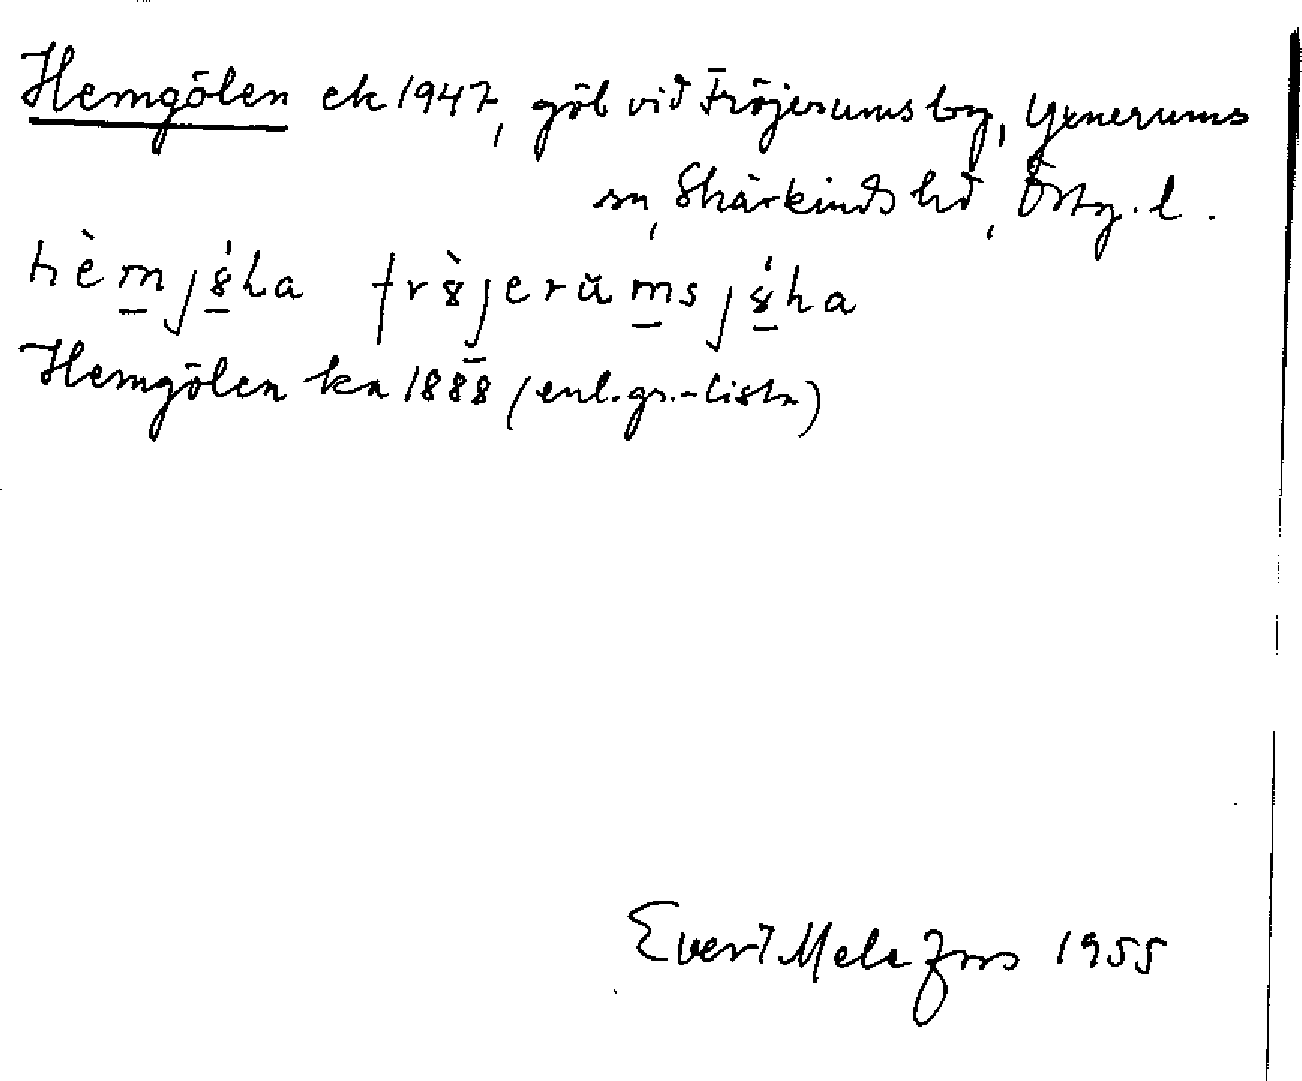 Hemgölen ek 1947, göl vid Fröjerums by, Yxnerums
sn, Skärkinds hd, Östg. l.
hèmjɞ́ƚa frɞ̀jerŭmsjɞ́ƚa
Hemgölen ka 1888 (enl. gr.-lista)
Evert Melefors 1955